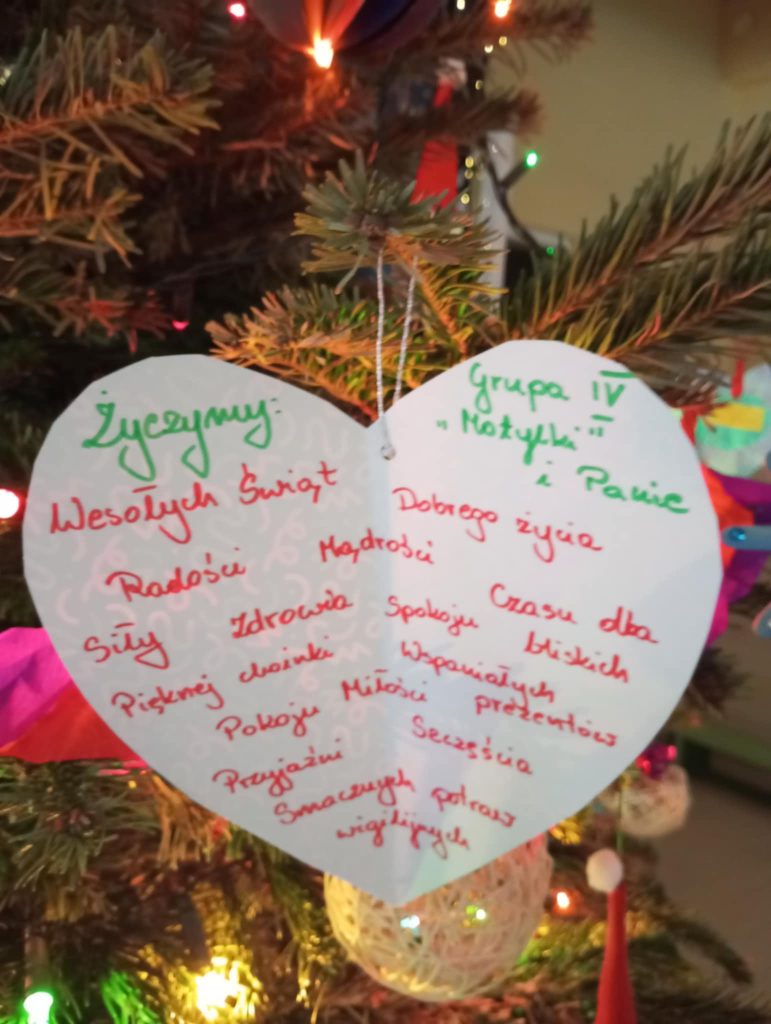 Życzymy:
Grupa IV
"Motylki"
i Panie
Wesołych Świąt
Dobrego życia
Radości
Mądrości
Czasu dla
bliskich
Siły
Zdrowia
Spokoju
Pięknej choinki
Wspaniałych
prezentów
Pokoju
Miłości
Szczęścia
Przyjaźni
Smacznych potraw
wigilijnych